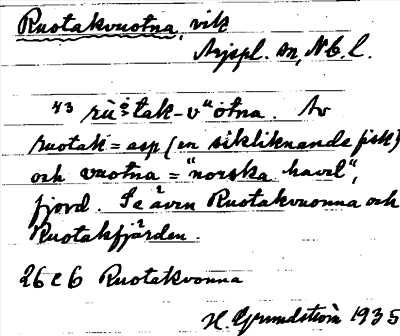 Ruotakvuotna, vik
Arjspl. sn, N.b.l.
43 rù̀ₒtak-vuòtna. Av
ruotak = asp (en sikliknande fisk)
och vuotna = "norska havet",
fjord. Se även Ruotakvuonna och
Ruotakfjärden.
26 c 6 Ruotakvonna
H. Grundström 1935